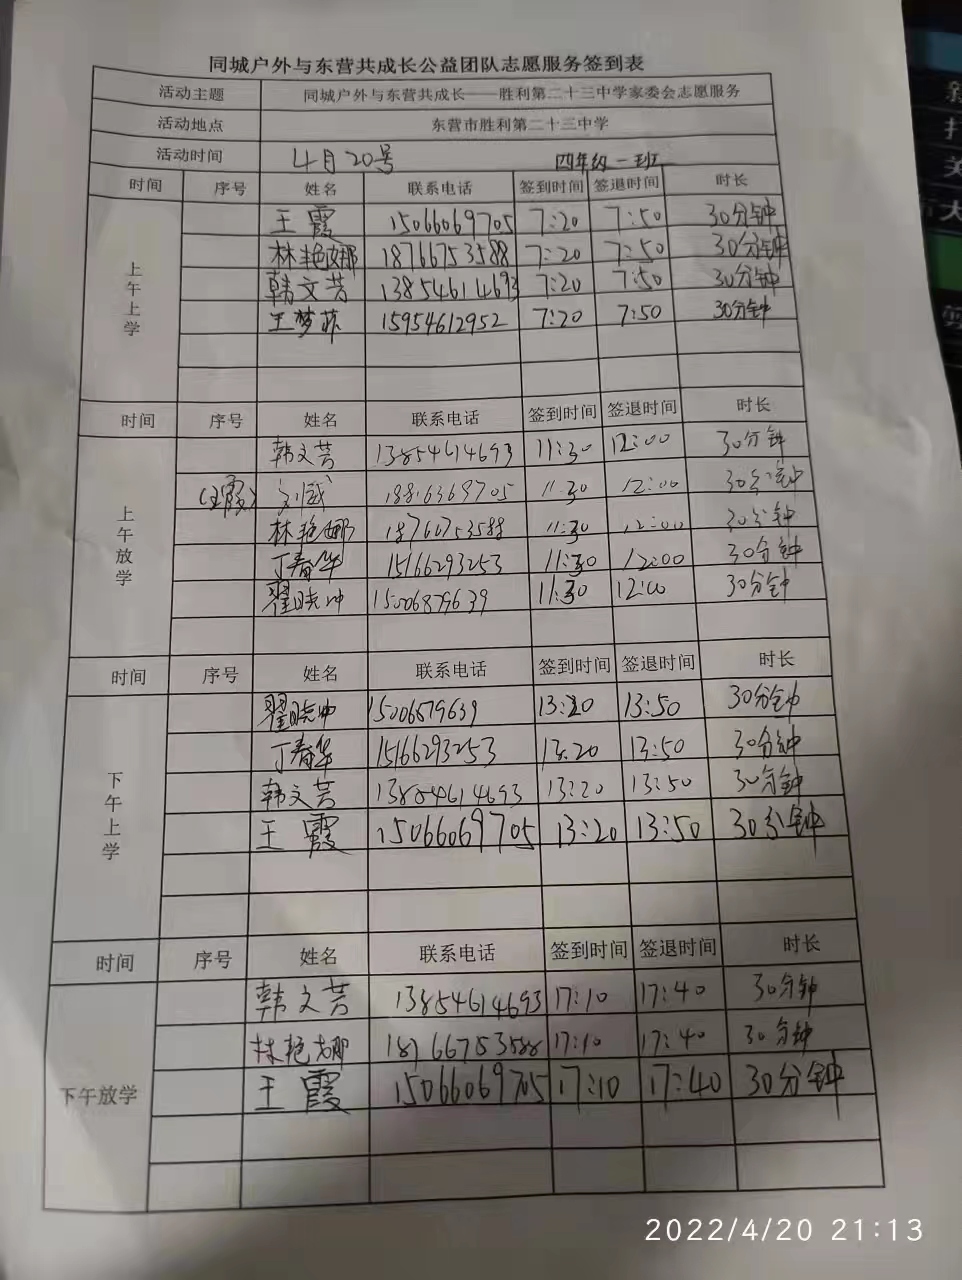 同城户外与东营共成长公益团队志愿服务签到表
活动主题 同城户外与东营共成长——胜利第二十三中学家委会志愿服务
活动地点 东营市胜利第二十三中学
活动时间 4月20号 四年级一班
时间 序号 姓名 联系电话 签到时间 签退时间 时长
上午上学
王霞 15066069705 7:20 7:50 30分钟
林艳娜 18766753588 7:20 7:50 30分钟
韩文芳 13854614693 7:20 7:50 30分钟
王梦菲 15954612952 7:20 7:50 30分钟
时间 序号 姓名 联系电话 签到时间 签退时间 时长
上午放学
韩文芳 13854614693 11:30 12:00 30分钟
(王霞) 刘威 18816369705 11:30 12:00 30分钟
林艳娜 18766753588 11:30 12:00 30分钟
丁春华 15166293253 11:30 12:00 30分钟
翟晓坤 15006879639 11:30 12:00 30分钟
时间 序号 姓名 联系电话 签到时间 签退时间 时长
下午上学
翟晓坤 15006879639 13:20 13:50 30分钟
丁春华 15166293253 13:20 13:50 30分钟
韩文芳 13854614693 13:20 13:50 30分钟
王霞 15066069705 13:20 13:50 30分钟
时间 序号 姓名 联系电话 签到时间 签退时间 时长
下午放学
韩文芳 13854614693 17:10 17:40 30分钟
林艳娜 18766753588 17:10 17:40 30分钟
王霞 15066069705 17:10 17:40 30分钟
2022/4/20 21:13